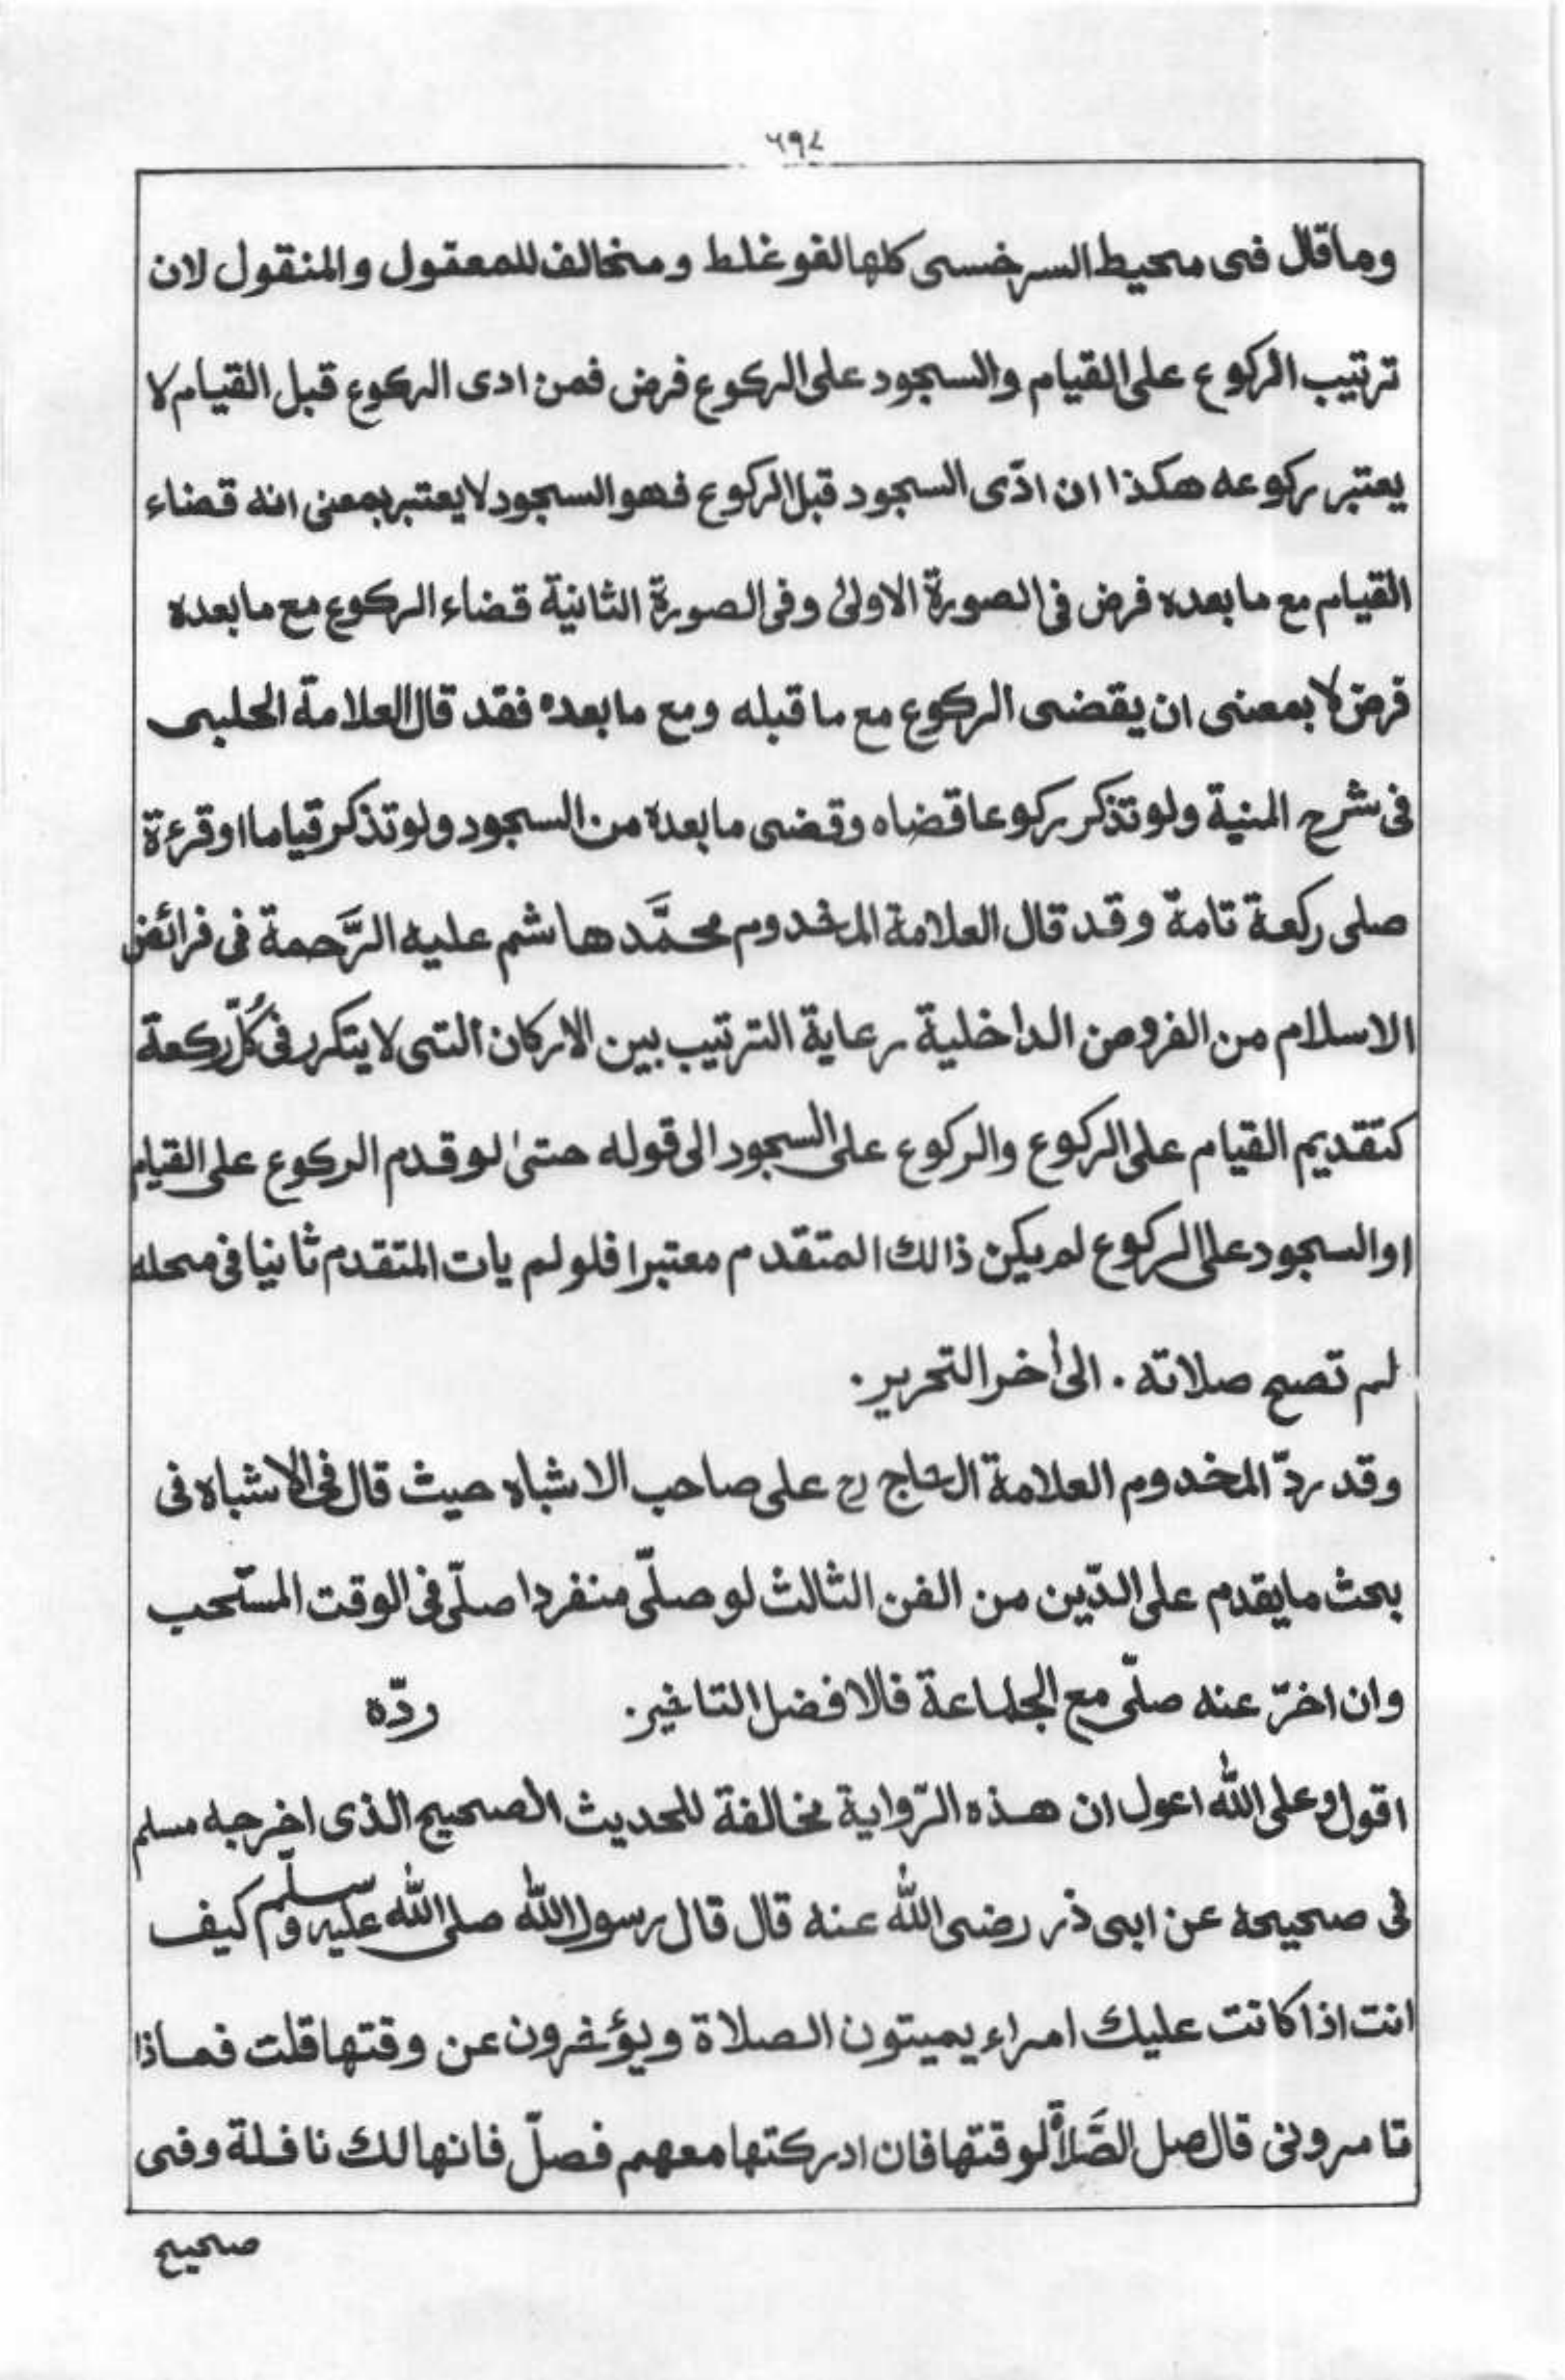 ٦٩٨
وما قال فى محيط السرخسى كلها لغو غلط ومخالف للمعقول والمنقول لان
ترتيب الركوع على القيام والسجود على الركوع فرض فمن ادى الركوع قبل القيام لا
يعتبر ركوعه هكذا ان ادّى السجود قبل الركوع فهو السجود لا يعتبر بمعنى انه قضاء
القيام مع ما بعده فرض فى الصورة الاولىٰ وفى الصورة الثانية قضاء الركوع مع ما بعده
فرض لا بمعنى ان يقضى الركوع مع ما قبله ومع ما بعده فقد قال العلامة الحلبى
فى شرح المنية ولو تذكر ركوعا قضاه وقضى ما بعدة من السجود ولو تذكر قياما او قرءة
صلى ركعة تامة وقد قال العلامة المخدوم محمَّد هاشم عليه الرَّحمة فى فرائض
الاسلام من الفروض الداخلية رعاية الترتيب بين الاركان التى لا يتكرر فى كُلّ ركعة
كتقديم القيام على الركوع والركوع على السجود الى قوله حتىٰ لو قدم الركوع على القيام
او السجود على الركوع لم يكن ذالك المتقدم معتبرا فلو لم يات المتقدم ثانيا فى محله
لم تصح صلاته . الىٰ أخر التحرير .
وقد ردّ المخدوم العلامة الحاج رح على صاحب الاشباه حيث قال فى الاشباه فى
بحث ما يقدم على الدّين من الفن الثالث لو صلّى منفردا صلّى فى الوقت المستحب
وان اخرّ عنه صلّى مع الجماعة فالافضل التاخير . ردّه
اقول وعلى الله اعول ان هذه الرّواية مخالفة للحديث الصحيح الذى اخرجه مسلم
فى صحيحه عن ابى ذر رضى الله عنه قال قال رسول الله صلى الله عليه وسلّم كيف
انت اذا كانت عليك امراء يميتون الصلاة ويؤخرون عن وقتها قلت فماذا
تامرونى قال صل الصَّلاة لوقتها فان ادركتها معهم فصلّ فانها لك نافلة وفى
صحيح